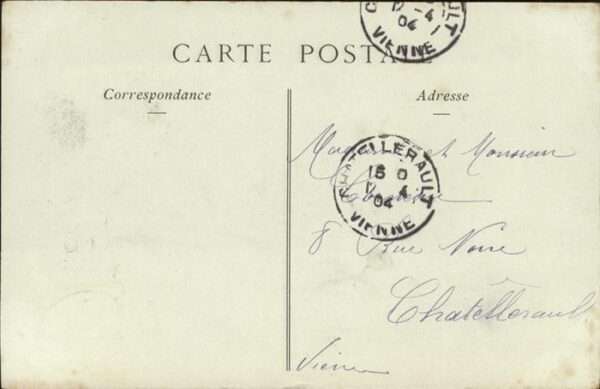 C LT
1 -4
04
VIENNE
CARTE POSTALE
Correspondance
Adresse
et Monsieur
CHATELLERAULT
15 0
1 4
04
VIENNE
8 Rue Noire
Chatellerault
Vienne